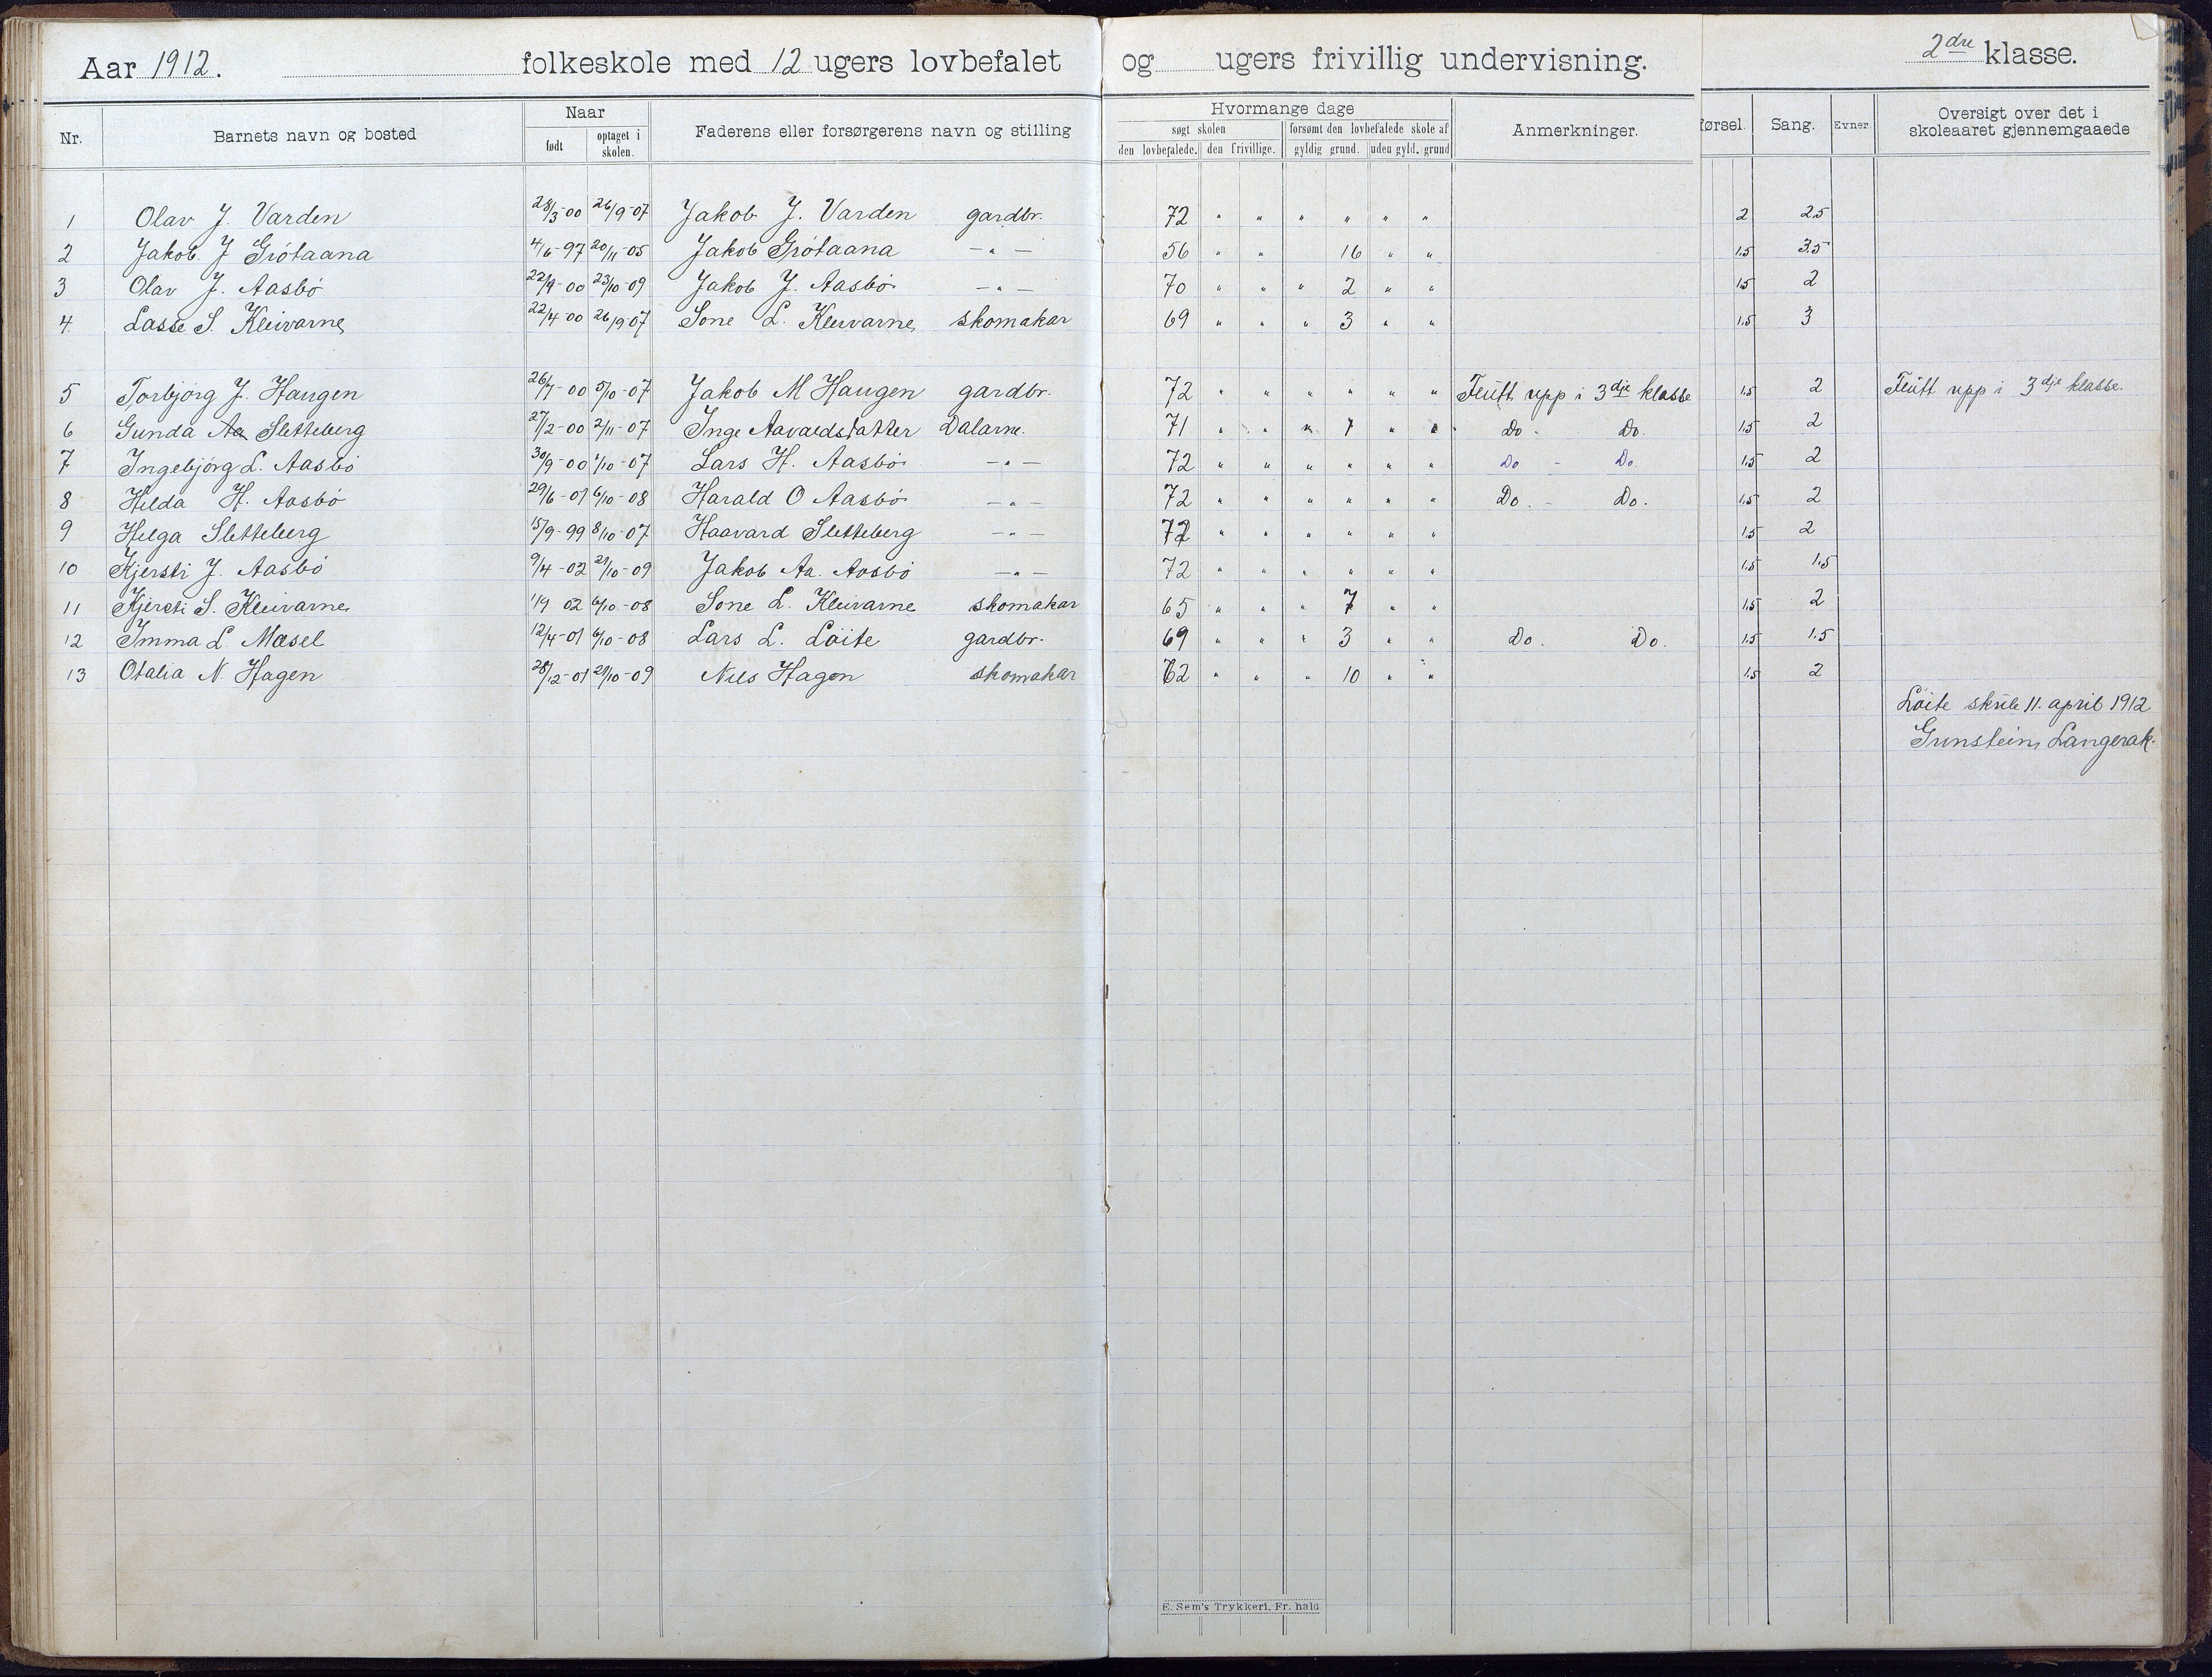 Aar 1912. folkeskole med 12 ugers lovbefalet og ugers frivillig undervisning. 2dre klasse.
Nr. Barnets navn og bosted Naar født optaget i skolen. Faderens eller forsørgerens navn og stilling Hvormange dage søgt skolen den lovbefalede. den frivillige. forsømt den lovbefalede skole af gyldig grund. uden gyld. grund Anmerkninger. førsel. Sang. Evner Oversigt over det i skoleaaret gjennemgaaede
1 Olav J. Varden 28/3-00 26/9-07 Jakob J. Varden gardbr. 72 " " " " " " 2 2.5
2 Jakob J Grötaana 4/6-97 20/11-05 Jakob Grötaana -"- 56 " " 16 " " 1.5 3.5
3 Olav J. Aasbö 22/9-00 23/10-09 Jakob J. Aasbö -"- 70 " " " 2 " " 1.5 2
4. Lasse S. Kleivarne 22/4-00 26/9-07 Sone L. Kleivarne skomakar 69 " " " 3 " " 1.5 3
5 Torbjörg J. Haugen 26/7-00 5/10-07 Jakob M Haugen gardbr. 72 " " " " " " Flütt upp i 3dje klasse 1.5 2 Flütt upp i 3dje klasse.
6 Gunda Aa Sletteberg 27/2-00 2/11-07 Inge Aavaldsdatter Dalarne. 71 " " " 1 " " Do. Do. 1.5 2
7 Ingebjörg L. Aasbö 30/9-00 1/10-07 Lars H. Aasbö -"- 72 " " " " " " Do - Do. 1.5 2
8 Hilda H. Aasbö 29/6-01 6/10-08 Harald O Aasbö -"- 72 " " " " " " Do. - Do. 1.5 2
9 Helga Sletteberg 15/9-99 8/10-07 Haavard Sletteberg -"- 72 " " " " " " 1.5 2
10 Kjersti J. Aasbö 9/4-02 21/10-09 Jakob Aa. Aasbö -"- 72 " " " " " " 1.5 1.5
11 Kjersti S. Kleivarne 1/9 02 6/10-08 Sone L. Kleivarne skomakar 65 " " " 7 " " 1.5 2
12 Imma L. Mæsel 12/4-01 6/10-08 Lars L. Löite gardbr. 69 " " " 3 " " Do. Do. 1.5 1.5
13 Otalia N. Hagen 28/12-01 21/10-09 Nils Hagen skomakar 62 " " " 10 " " 1.5 2
Löite skule 11. april 1912
Gunstein Langerak.
E. Sem's Trykkeri, Fr. hald